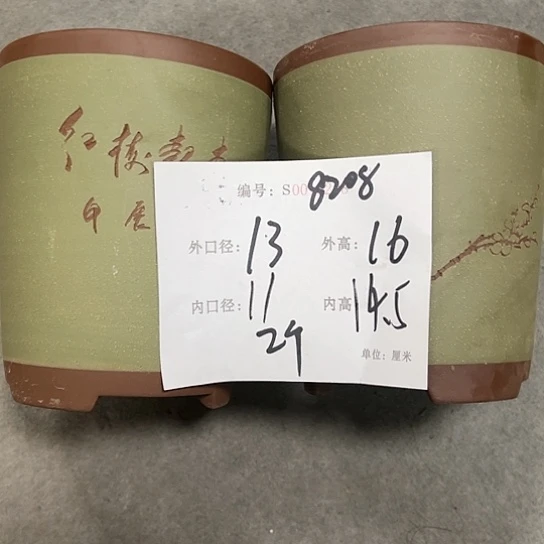 红梅报春
编号: S00 8208
外口径: 13 外高: 16
内口径: 11 内高: 14.5
24
单位: 厘米